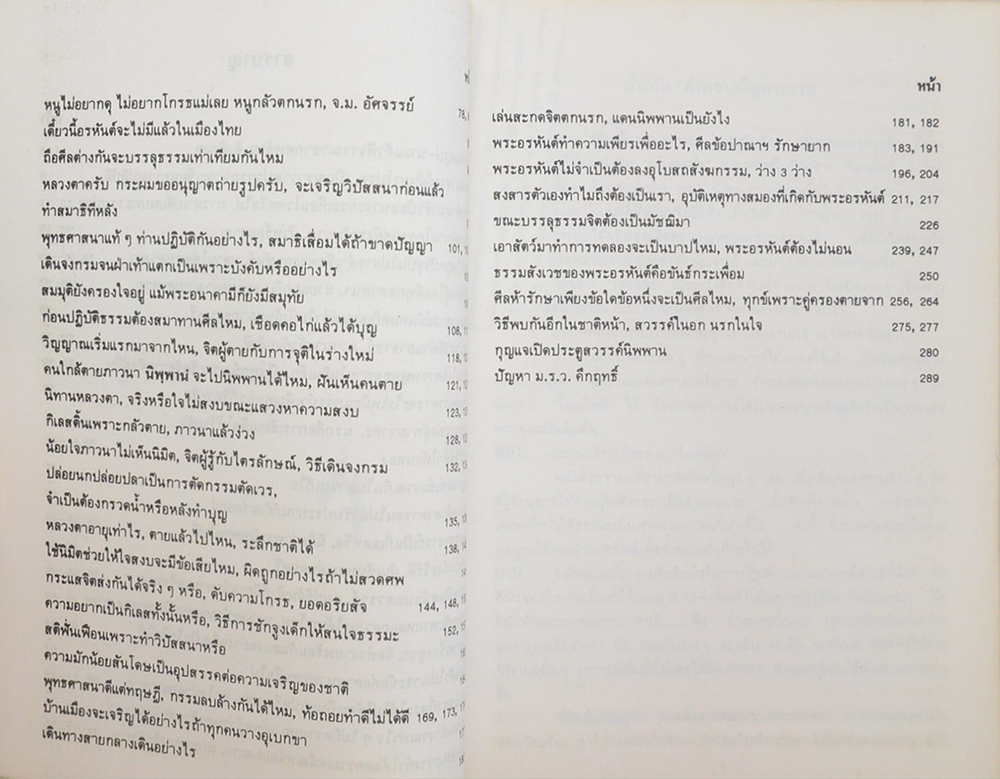 หนูไม่อยากดุ ไม่อยากโกรธแม่เลย หนูกลัวตกนรก, จ.ม. อัศจรรย์ 78,
เดี๋ยวนี้อรหันต์จะไม่มีแล้วในเมืองไทย
ถือศีลต่างกันจะบรรลุธรรมเท่าเทียมกันไหม
หลวงตาครับ กระผมขออนุญาตถ่ายรูปครับ, จะเจริญวิปัสสนาก่อนแล้ว
ทำสมาธิทีหลัง
พุทธศาสนาแท้ ๆ ท่านปฏิบัติกันอย่างไร, สมาธิเสื่อมได้ถ้าขาดปัญญา 101,
เดินจงกรมจนฝ่าเท้าแตกเป็นเพราะบังคับหรืออย่างไร
สมมุติยังครองใจอยู่ แม้พระอนาคามีก็ยังมีสมุทัย
ก่อนปฏิบัติธรรมต้องสมาทานศีลไหม, เชือดคอไก่แล้วได้บุญ 108,
วิญญาณเริ่มแรกมาจากไหน, จิตผู้ตายกับการจุติในร่างใหม่ 118,
คนใกล้ตายภาวนา นิพฺพานํ จะไปนิพพานได้ไหม, ฝันเห็นคนตาย 121,
นิทานหลวงตา, จริงหรือใจไม่สงบขณะแสวงหาความสงบ 123,
กิเลสดิ้นเพราะกลัวตาย, ภาวนาแล้วง่วง 128,
น้อยใจภาวนาไม่เห็นนิมิต, จิตผู้รู้กับไตรลักษณ์, วิธีเดินจงกรม 132,
ปล่อยนกปล่อยปลาเป็นการตัดกรรมตัดเวร,
จำเป็นต้องกรวดน้ำหรือหลังทำบุญ 135,
หลวงตาอายุเท่าไร, ตายแล้วไปไหน, ระลึกชาติได้ 138,
ใช้นิมิตช่วยให้ใจสงบจะมีข้อเสียไหม, ผิดถูกอย่างไรถ้าไม่สวดศพ
กระแสจิตส่งกันได้จริง ๆ หรือ, ดับความโกรธ, ยอดอริยสัจ 144, 148,
ความอยากเป็นกิเลสทั้งนั้นหรือ, วิธีการชักจูงเด็กให้สนใจธรรมะ 152,
สติฟั่นเฟือนเพราะทำวิปัสสนาหรือ
ความมักน้อยสันโดษเป็นอุปสรรคต่อความเจริญของชาติ
พุทธศาสนาดีแต่ทฤษฎี, กรรมลบล้างกันได้ไหม, ท้อถอยทำดีไม่ได้ดี 169, 173,
บ้านเมืองจะเจริญได้อย่างไรถ้าทุกคนวางอุเบกขา
เดินทางสายกลางเดินอย่างไร
หน้า
เล่นสะกดจิตตกนรก, แดนนิพพานเป็นยังไง 181, 182
พระอรหันต์ทำความเพียรเพื่ออะไร, ศีลข้อปาณาฯ รักษายาก 183, 191
พระอรหันต์ไม่จำเป็นต้องลงอุโบสถสังฆกรรม, ว่าง 3 ว่าง 196, 204
สงสารตัวเองทำไมถึงต้องเป็นเรา, อุบัติเหตุทางสมองที่เกิดกับพระอรหันต์ 211, 217
ขณะบรรลุธรรมจิตต้องเป็นมัชฌิมา 226
เอาสัตว์มาทำการทดลองจะเป็นบาปไหม, พระอรหันต์ต้องไม่นอน 239, 247
ธรรมสังเวชของพระอรหันต์คือขันธ์กระเพื่อม 250
ศีลห้ารักษาเพียงข้อใดข้อหนึ่งจะเป็นศีลไหม, ทุกข์เพราะคู่ครองตายจาก 256, 264
วิธีพบกันอีกในชาติหน้า, สวรรค์ในอก นรกในใจ 275, 277
กุญแจเปิดประตูสวรรค์นิพพาน 280
ปัญหา ม.ร.ว. คึกฤทธิ์ 289